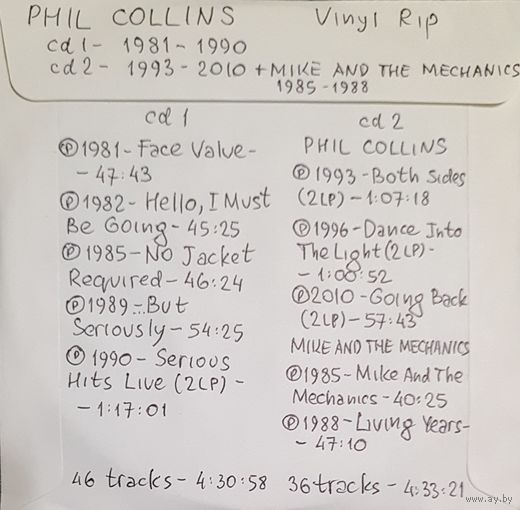 PHIL COLLINS Vinyl Rip
cd 1 - 1981 - 1990
cd 2 - 1993 - 2010 + MIKE AND THE MECHANICS
1985 - 1988
cd 1
Ⓟ1981 - Face Value -
- 47:43
Ⓟ1982 - Hello, I Must
Be Going - 45:25
Ⓟ1985 - No Jacket
Required - 46:24
Ⓟ1989 ... But
Seriously - 54:25
Ⓟ1990 - Serious
Hits Live (2LP) -
- 1:17:01
46 tracks - 4:30:58
cd 2
PHIL COLLINS
Ⓟ1993 - Both Sides
(2LP) - 1:07:18
Ⓟ1996 - Dance Into
The Light (2LP) -
- 1:00:52
Ⓟ2010 - Going Back
(2LP) - 57:43
MIKE AND THE MECHANICS
Ⓟ1985 - Mike And The
Mechanics - 40:25
Ⓟ1988 - Living Years -
- 47:10
36 tracks - 4:33:21
www.ay.by